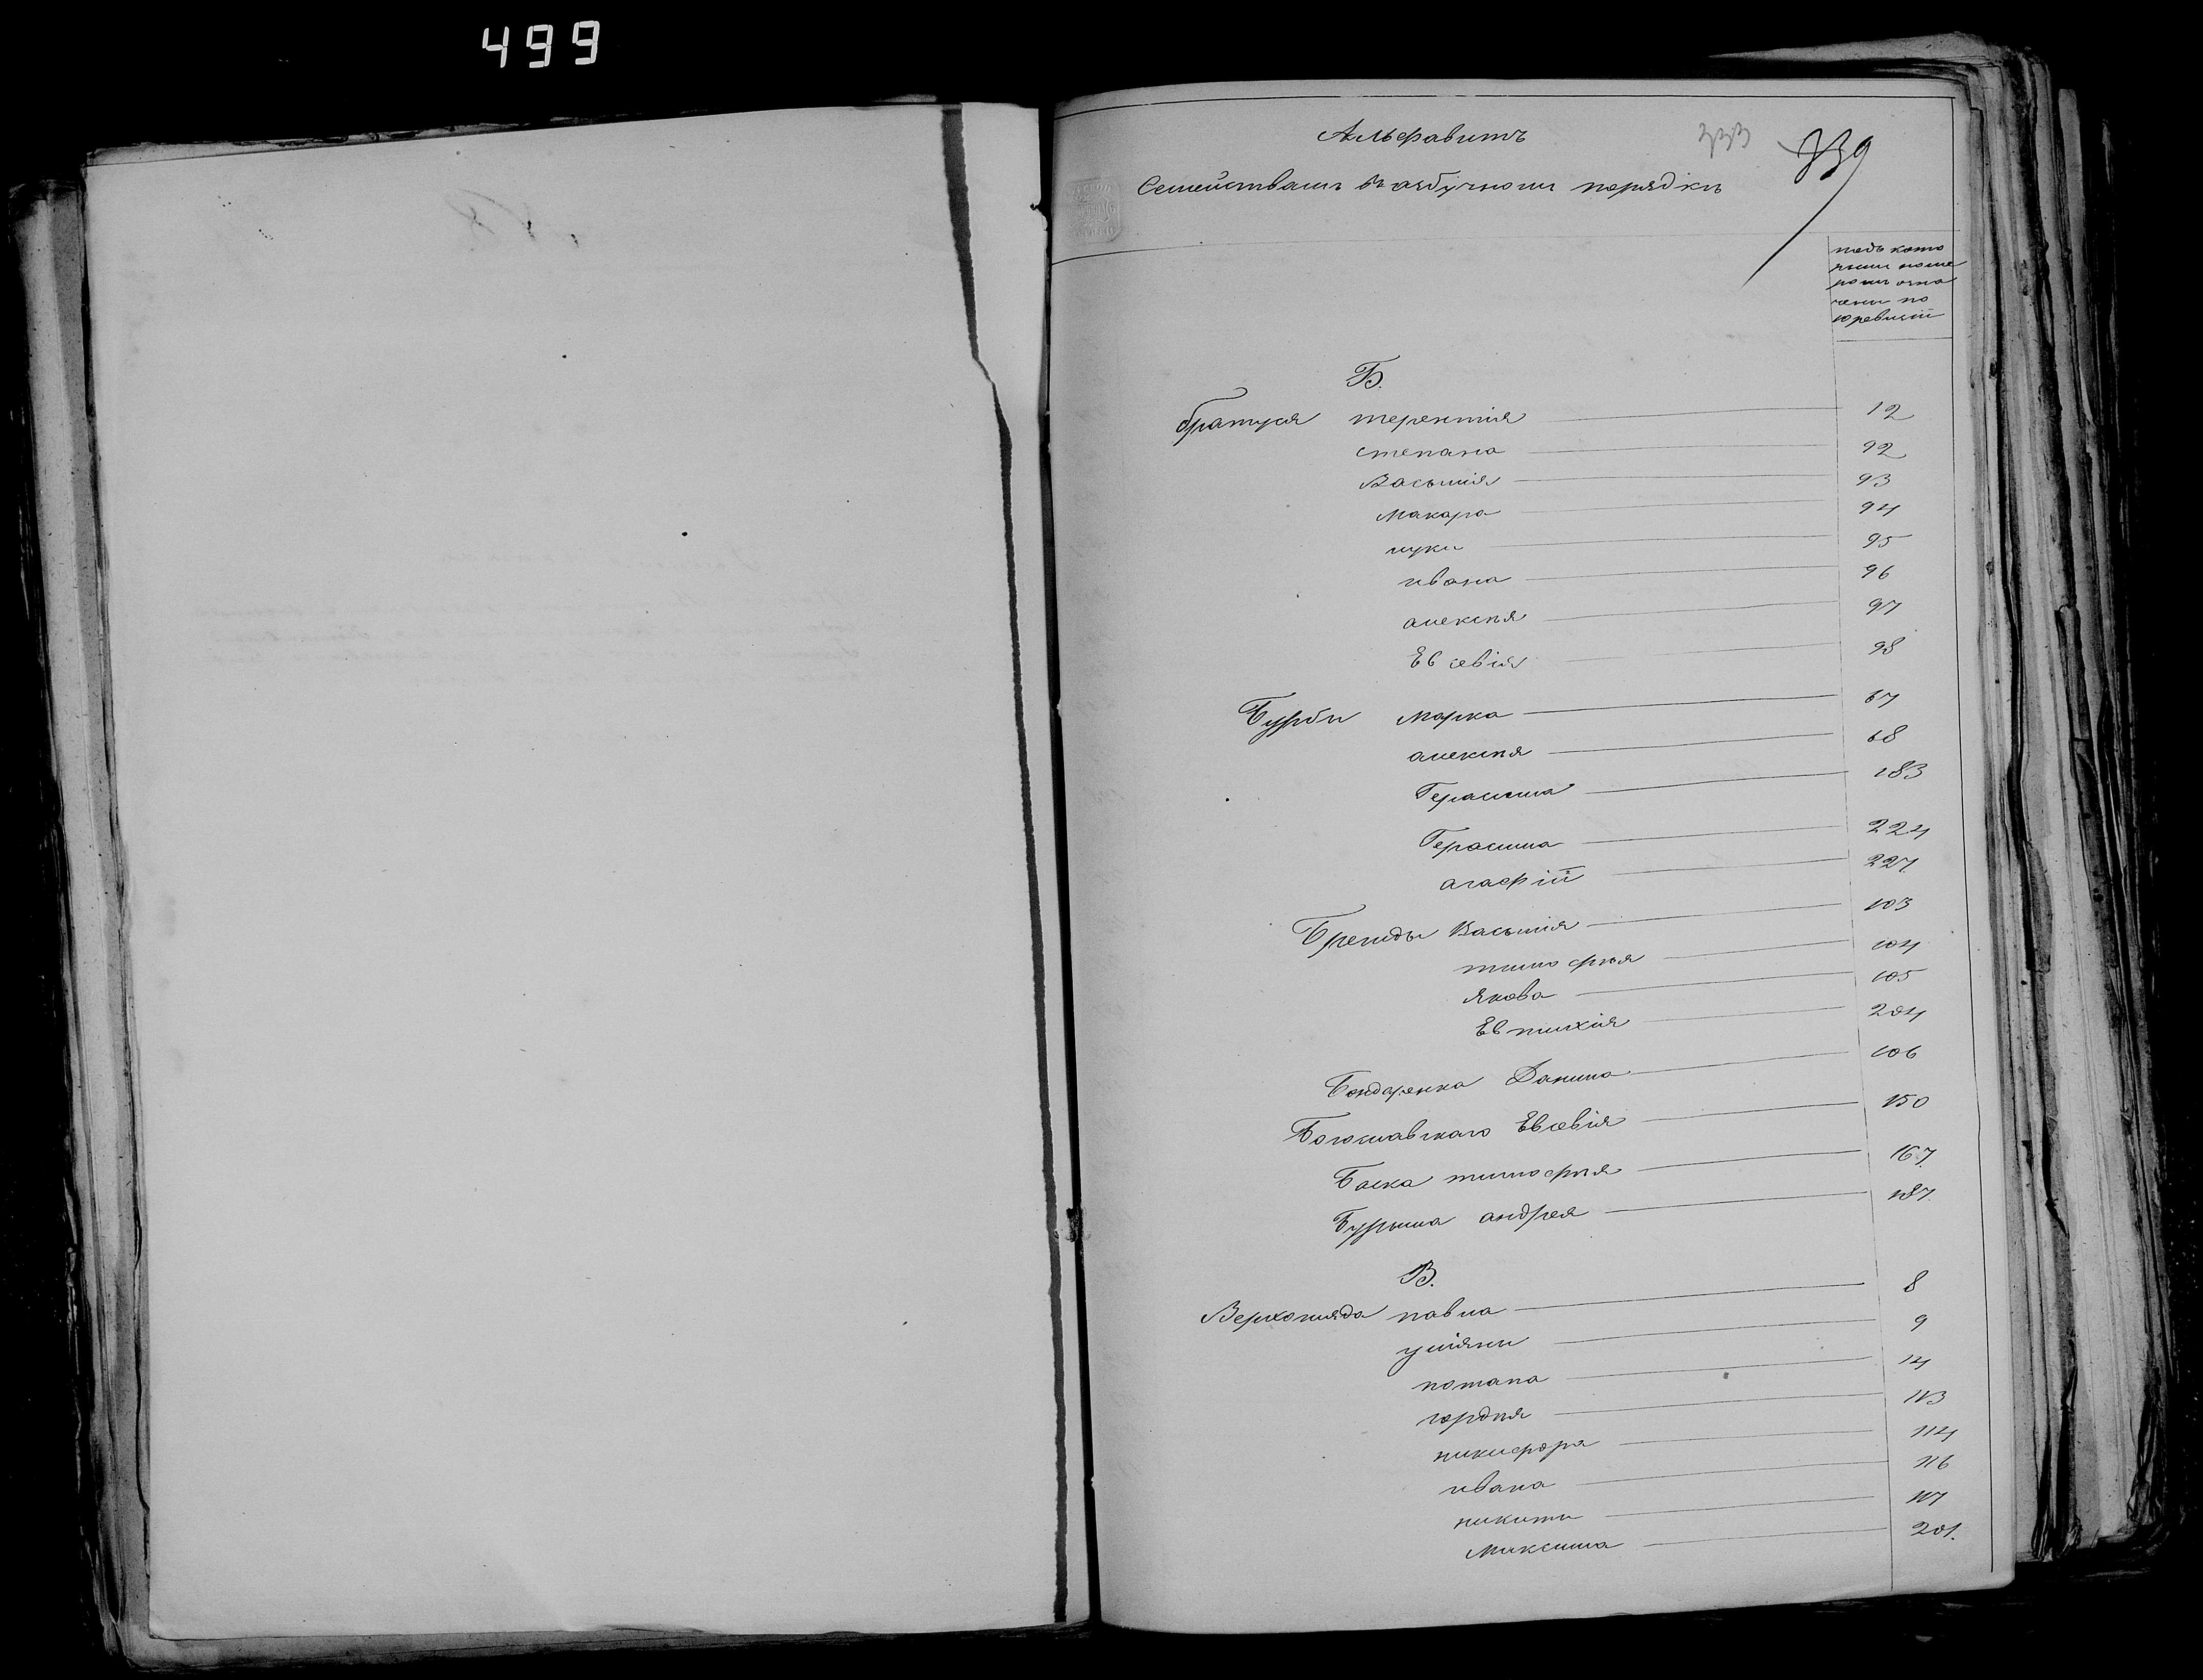 499
Альфавитъ
333
339
Семействамъ въ азбучномъ порядкѣ
подъ кото
рыми номе
рами озна
чены по
10 ревизіи
Б.
братуся терентія 12
степана 92
Василія 93
Макара 94
луки 95
ивана 96
алексѣя 97
Евсевія 98
Бурбы Марка 67
алексѣя 68
Герасима 183
Герасима 224
агафіи 227
Василія 103
тимофѣя 104
Якова 105
Евтихія 204
Бондаренка Данила 106
Богославскаго Евсевія 150
Баска тимофѣя 167.
Бурыма андрея 187.
В.
Верхогляда павла 8
уліяны 9
потапа 14
гордѣя 113
никифора 114
ивана 116
никиты 117
Максима 201.